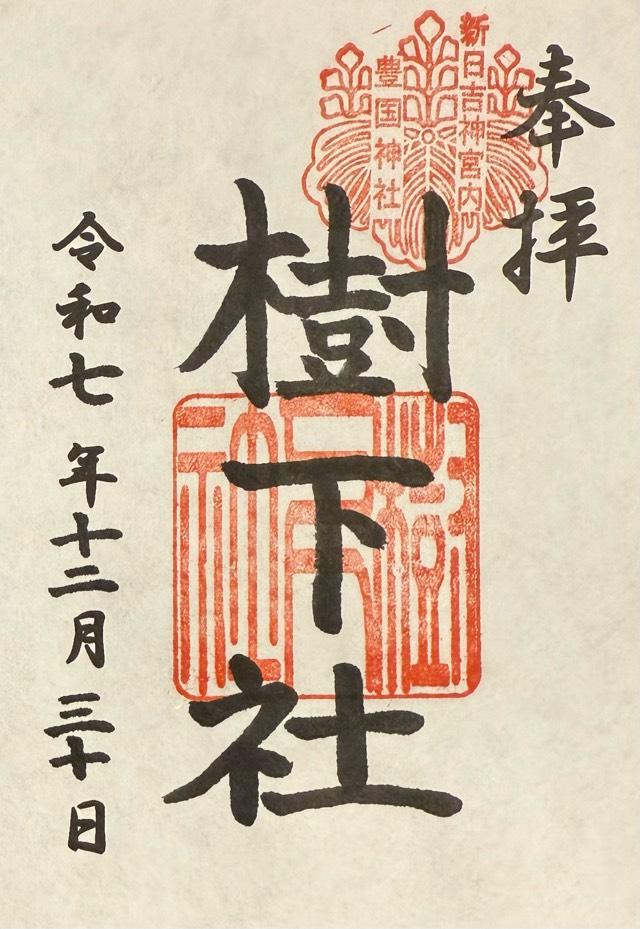 奉拝
新日吉神宮内
豊国神社
樹下社
令和七年十二月三十日